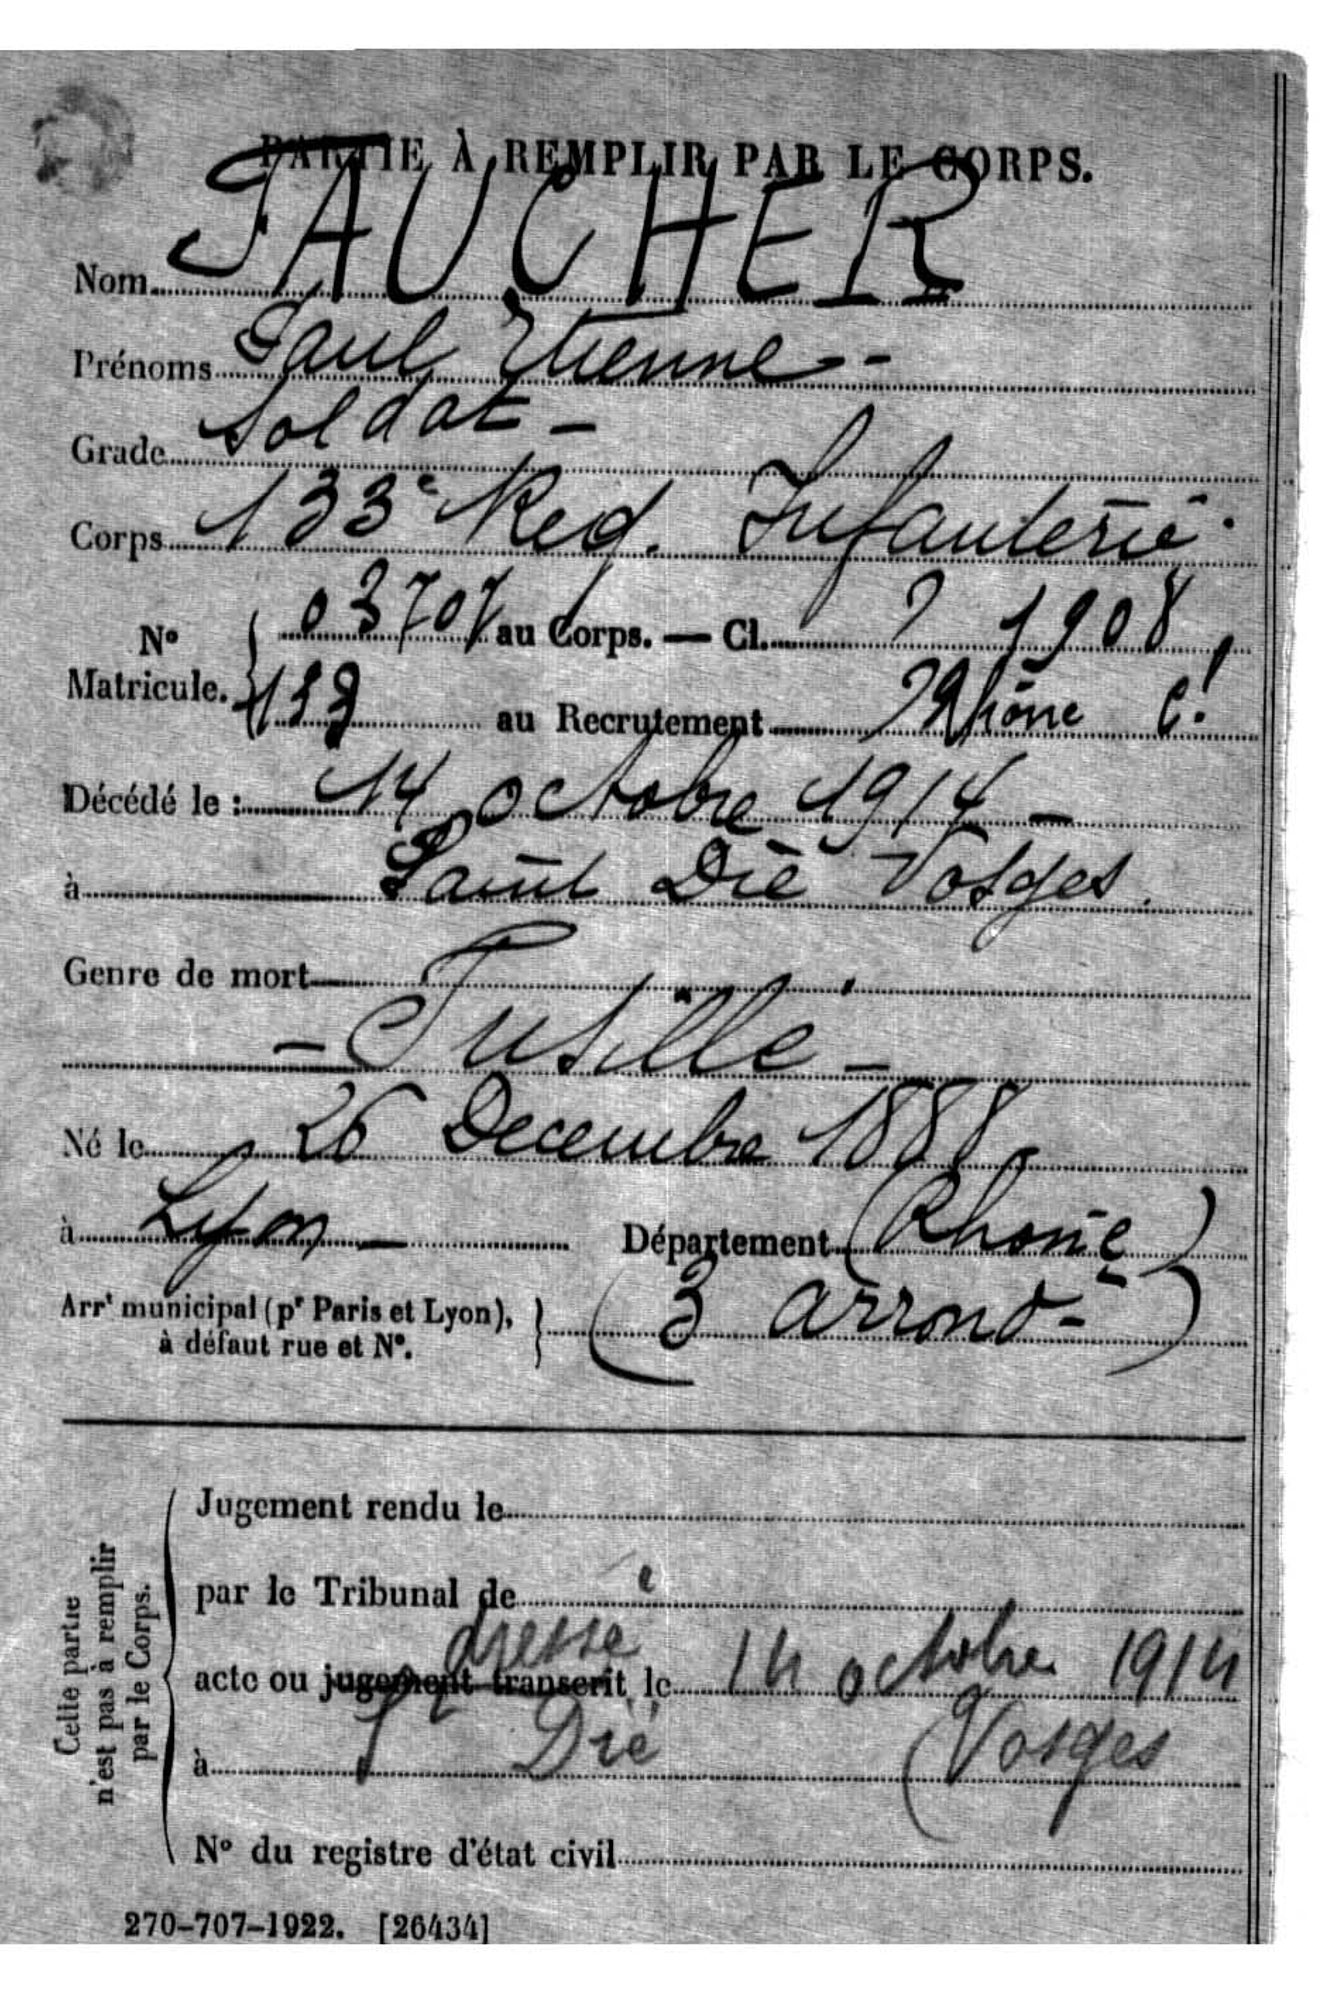 PARTIE À REMPLIR PAR LE CORPS.
Nom FAUCHER
Prénoms Paul Etienne --
Grade Soldat -
Corps 133e Reg. Infanterie.
N° Matricule. { 03707 au Corps. — Cl. 1908
au Recrutement Rhône C!
Décédé le : 14 octobre 1914 -
à Saint Dié Vosges.
Genre de mort
- Fusillé -
Né le 26 Decembre 1888
à Lyon — Département (Rhône)
Arrt municipal (pr Paris et Lyon), à défaut rue et N°. } (3 arrond-)
Cette partie n'est pas à remplir par le Corps.
Jugement rendu le
par le Tribunal de
dressé
acte ou jugement transcrit le 14 octobre 1914
à St Dié (Vosges
N° du registre d'état civil
270-707-1922. [26434]